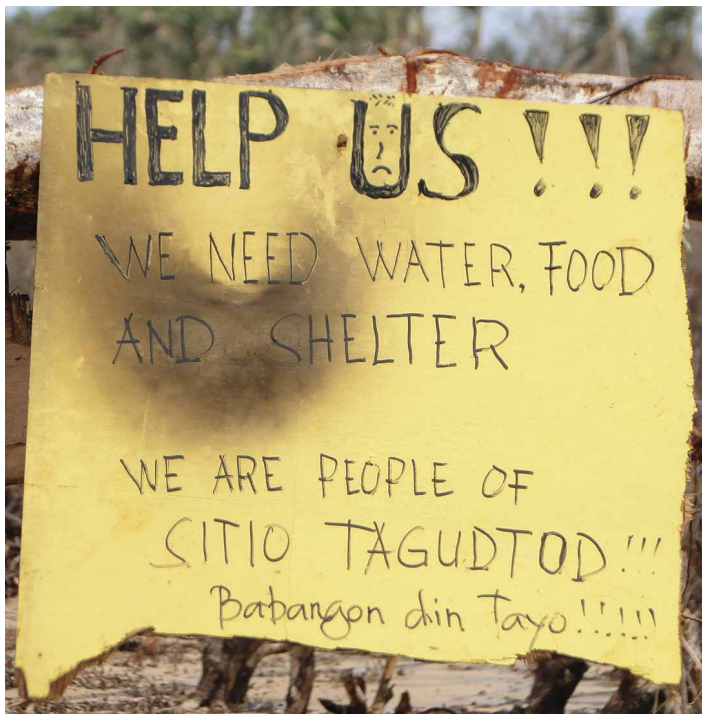 HELP US !!!
WE NEED WATER, FOOD
AND SHELTER
WE ARE PEOPLE OF
SITIO TAGUDTOD!!!
Babangon din Tayo!!!!!!